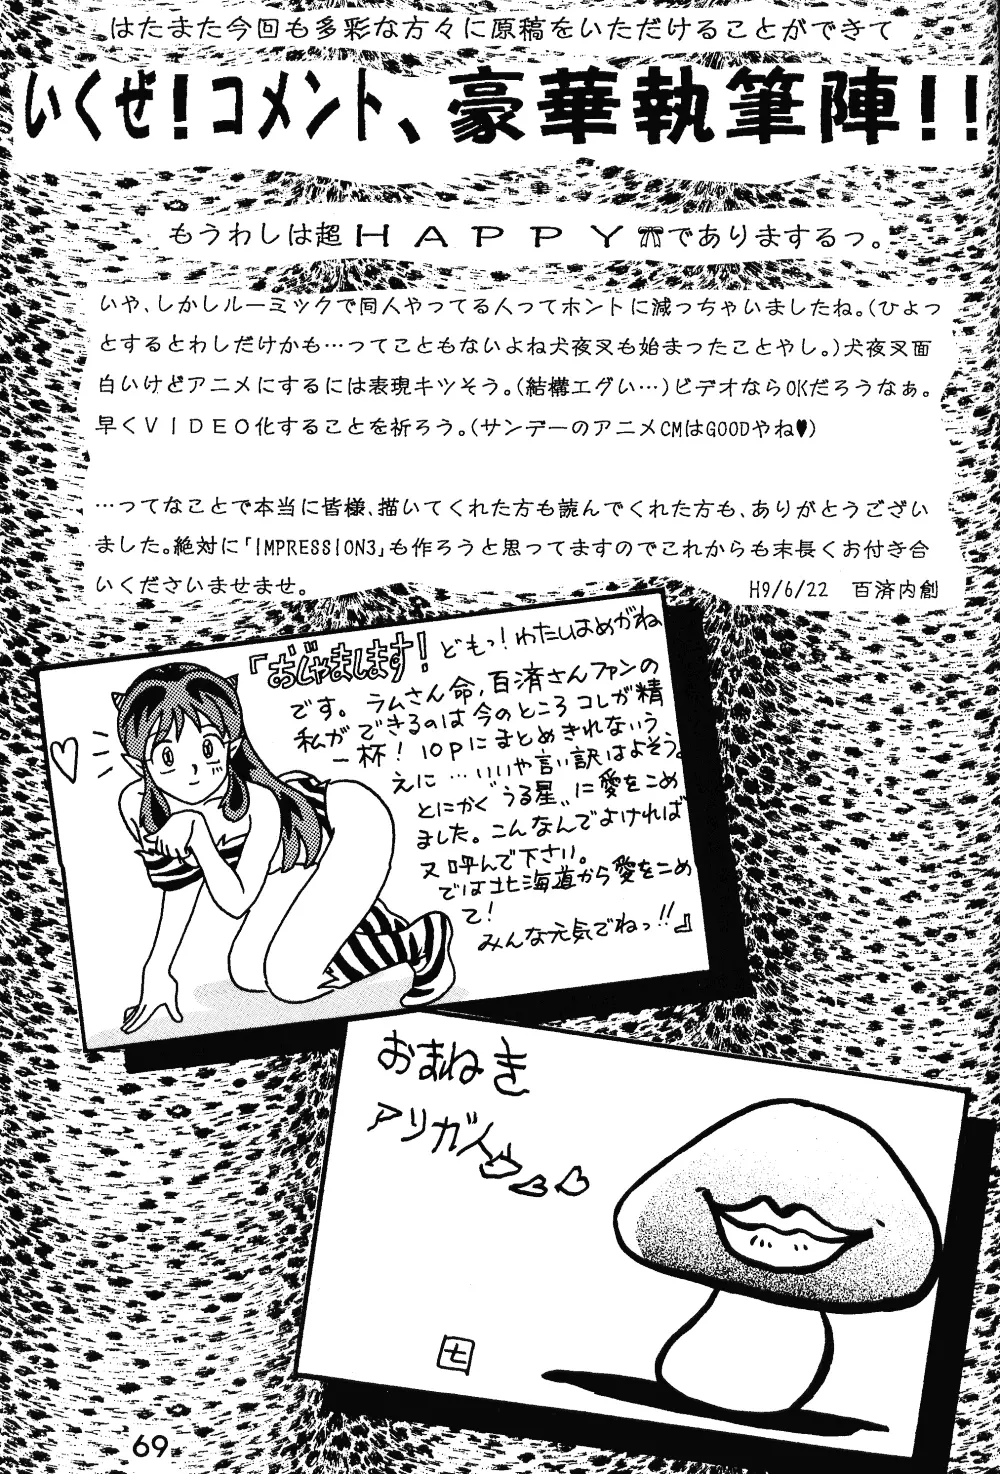 はたまた今回も多彩な方々に原稿をいただけることができて
いくぜ！コメント、豪華執筆陣！！
もうわしは超ＨＡＰＰＹでありまするっ。
いや、しかしルーミックで同人やってる人ってホントに減っちゃいましたね。（ひょっ
とするとわしだけかも…ってこともないよね犬夜叉も始まったことやし。）犬夜叉面
白いけどアニメにするには表現キツそう。（結構エグい…）ビデオならOKだろうなぁ。
早くＶＩＤＥＯ化することを祈ろう。（サンデーのアニメCMはGOODやね♥）
…ってなことで本当に皆様、描いてくれた方も読んでくれた方も、ありがとうござい
ました。絶対に「IMPRESSION3」も作ろうと思ってますのでこれからも末長くお付き合
いくださいませませ。
H9/6/22　百済内創
「おじゃまします！ どもっ！わたしはめがね
です。ラムさん命、百済さんファンの
私ができるのは今のところコレが精
一杯！10Pにまとめきれないう
えに…いいや言い訳はよそう。
とにかく“うる星”に愛をこめ
ました。こんなんでよければ
又呼んで下さい。
では北海道から愛をこめ
て！
みんな元気でねっ!!』
おまねき
アリガトと♡♡♡
七
69